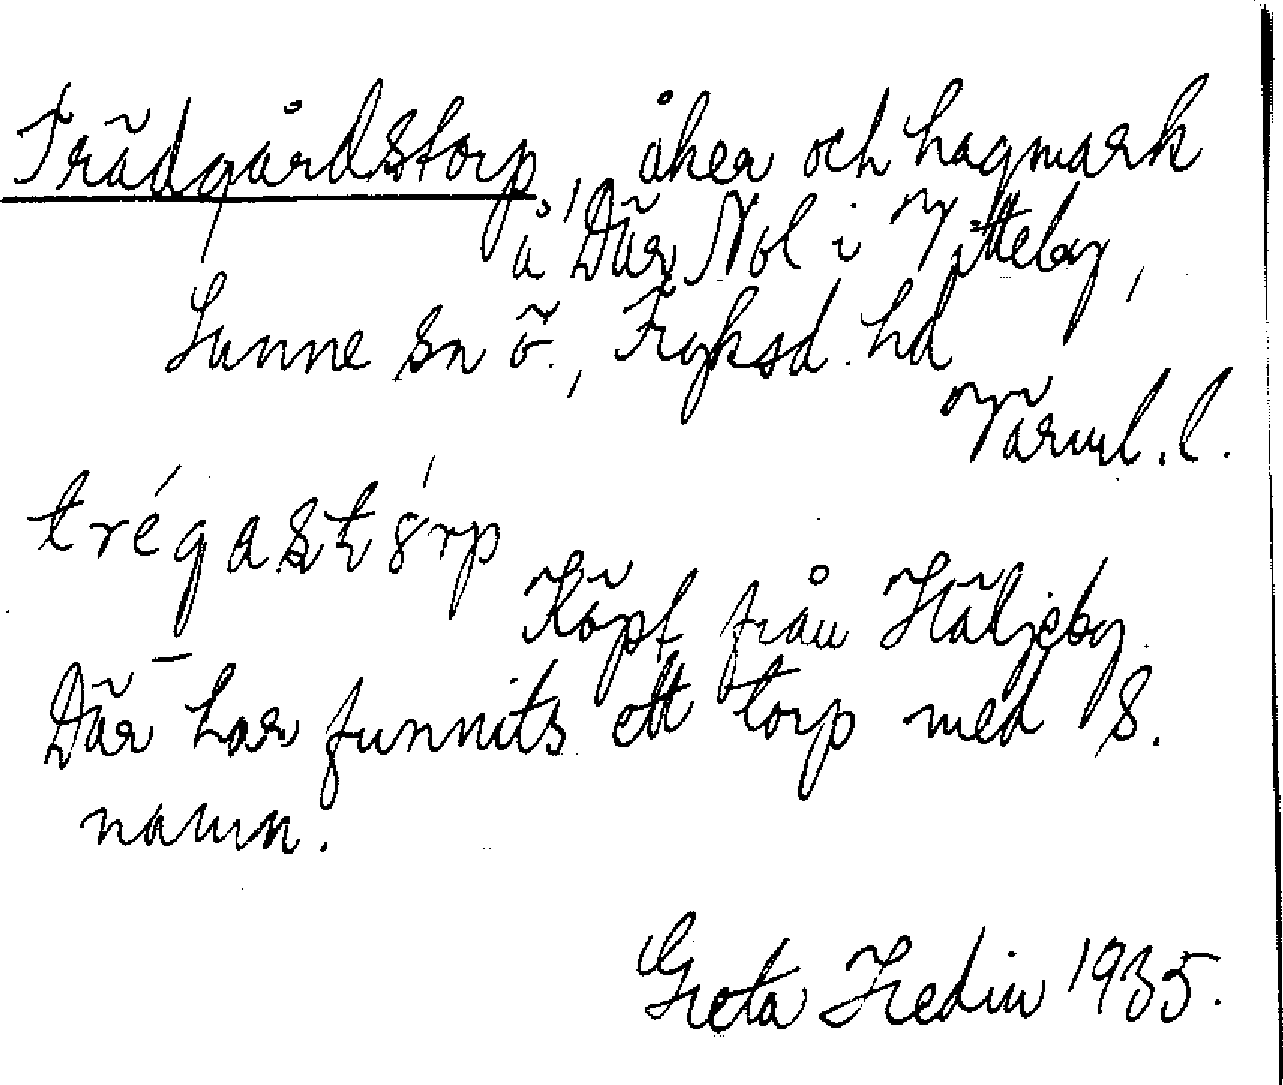 Trädgårdstorp, åker och hagmark
å Där Nol i Vitteby,
Sunne sn ö., Fryksd. hd
Värml. l.
trégastórp
Köpt från Häljeby.
Där har funnits ett torp med s.
namn.
Greta Hedin 1935.